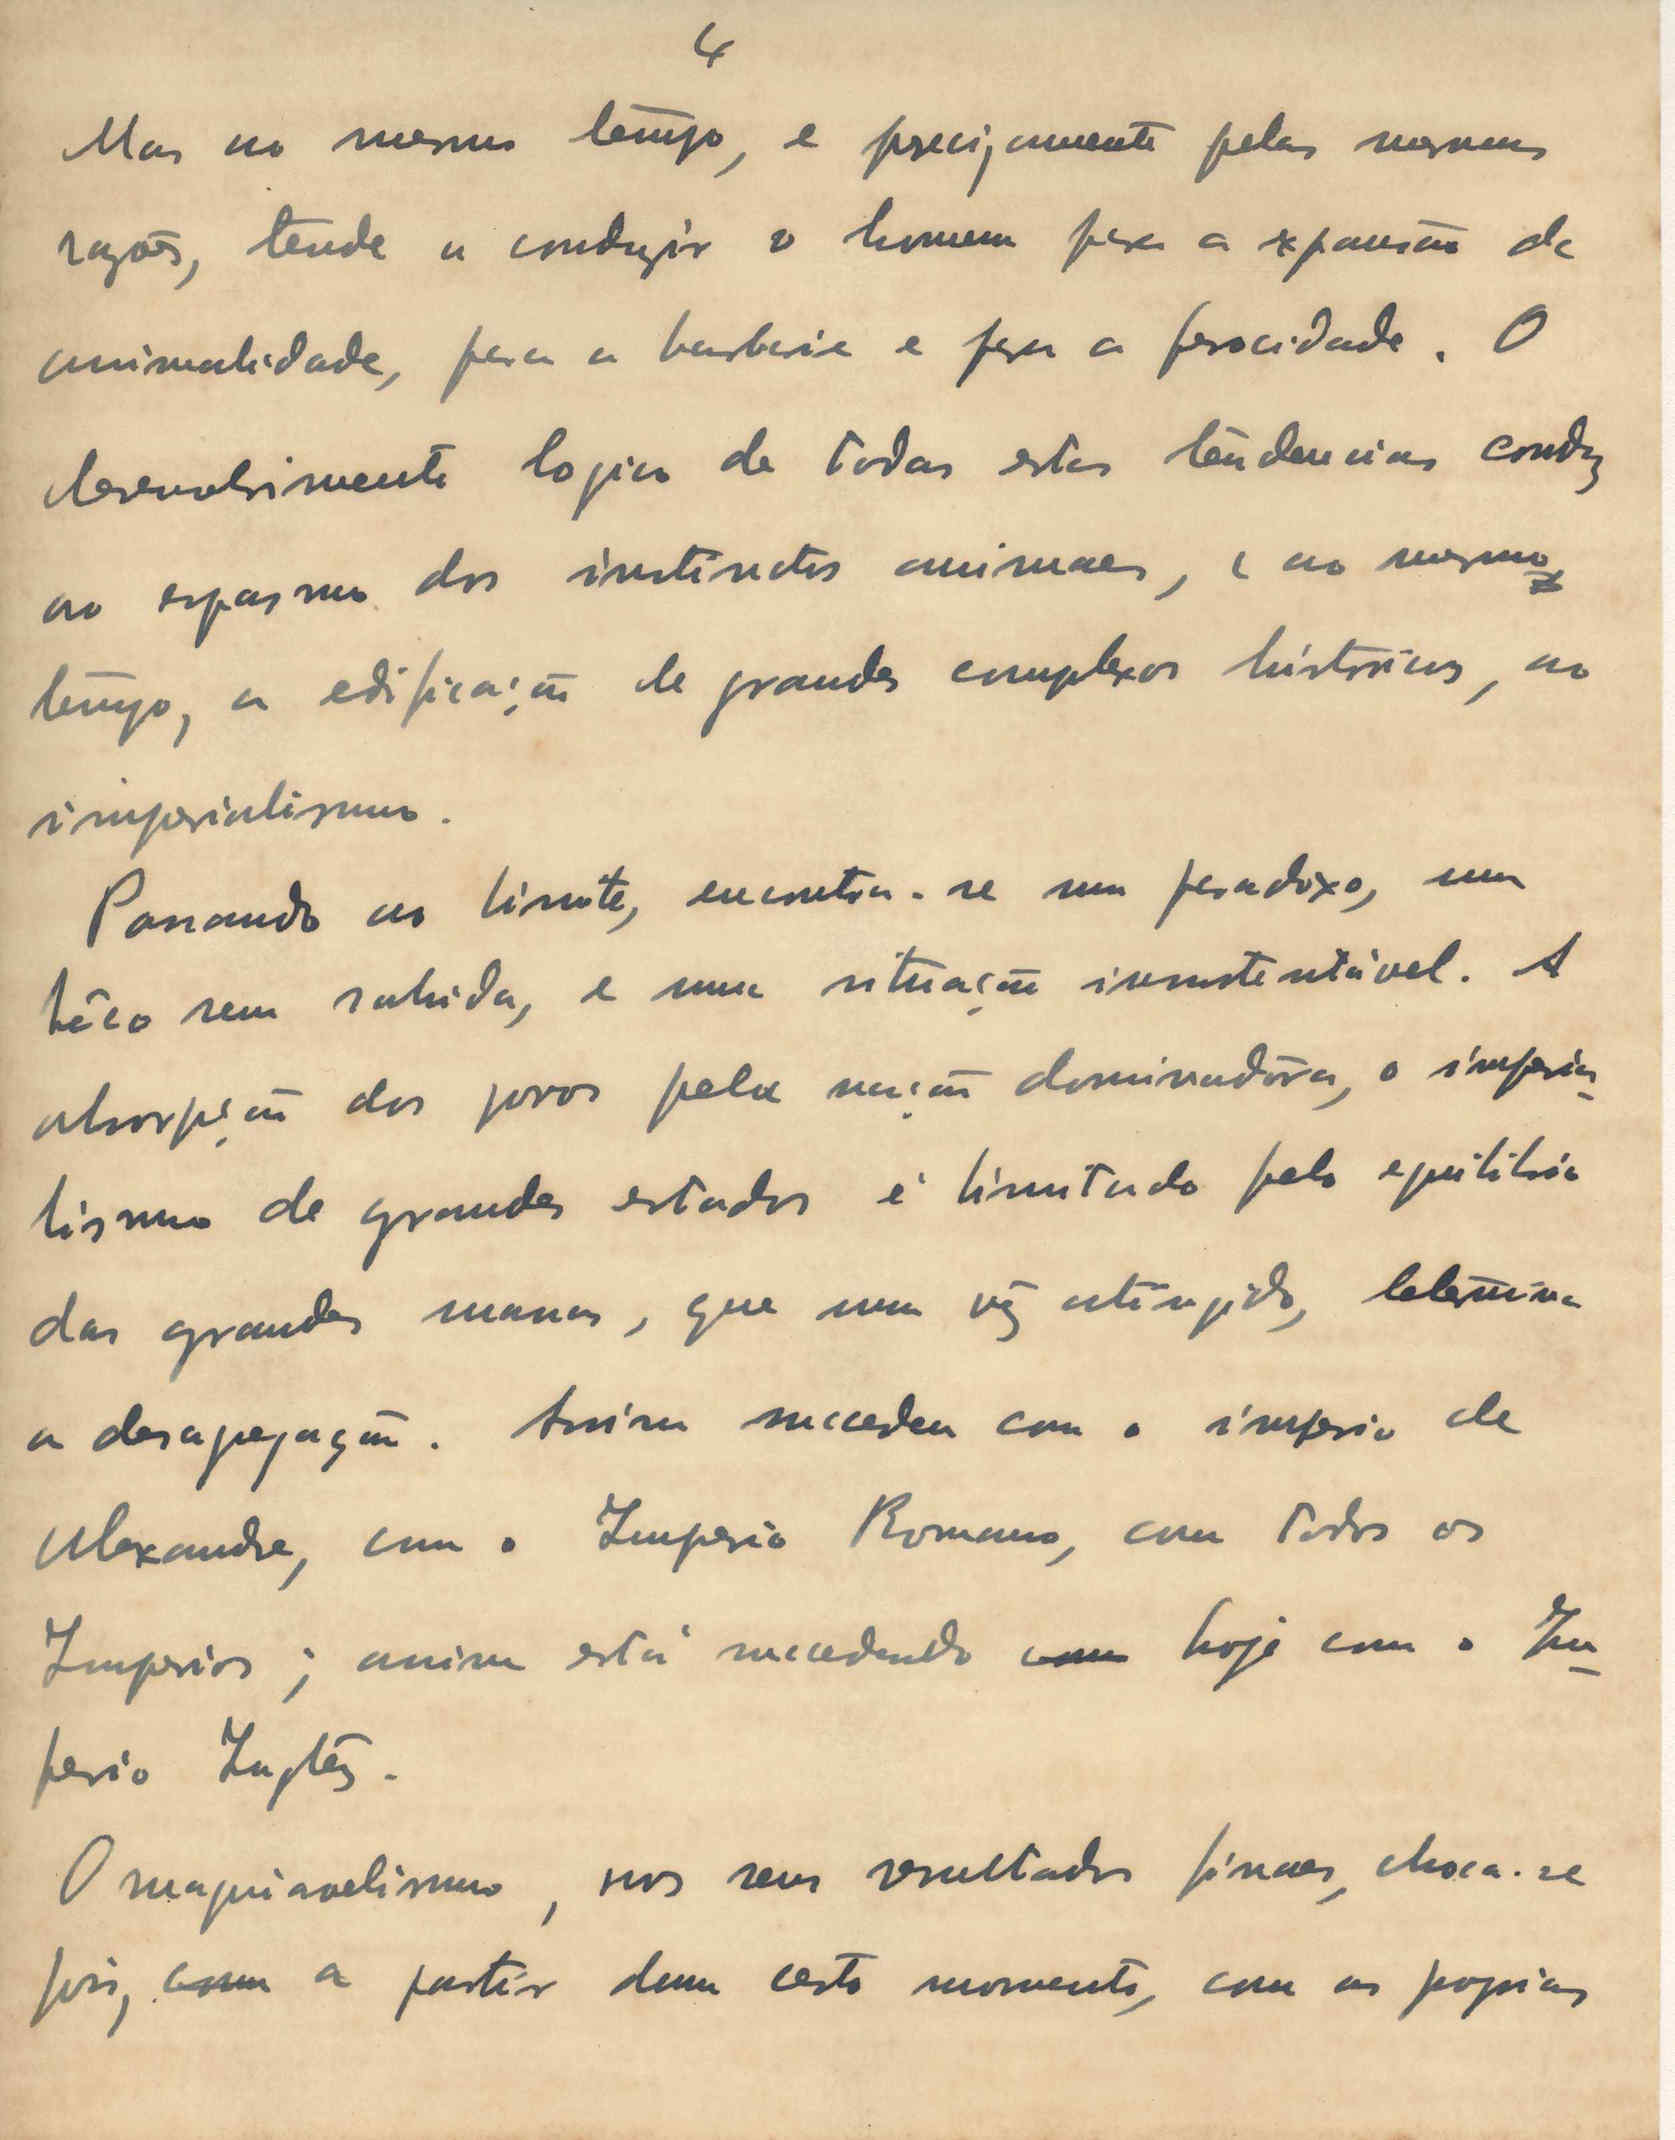 4
Mas ao mesmo tempo, e precizamente pelas mesmas
razões, tende a conduzir o homem para a expansão da
animalidade, para a barbarie e para a ferocidade. O
desenvolvimento logico de todas estas tendencias conduz
ao espasmo dos instinctos animaes, e ao mesmo
tempo, a edificação de grandes complexos históricos, ao
imperialismo.
Passando ao limite, encontra-se um paradoxo, um
bêco sem sahida, e uma situação insustentável. A
absorpção dos povos pela nação dominadôra, o imperia-
lismo de grandes estados é limitado pelo equilibrio
das grandes massas, que uma vêz atingido, determina
a desagregação. Assim succedeu com o imperio de
Alexandre, com o Imperio Romano, com todos os
Imperios; assim está succedendo com hoje com o Im-
perio Inglêz.
O maquiavelismo, nos seus resultados finaes, choca-se
pois, com a partir dum certo momento, com as proprias